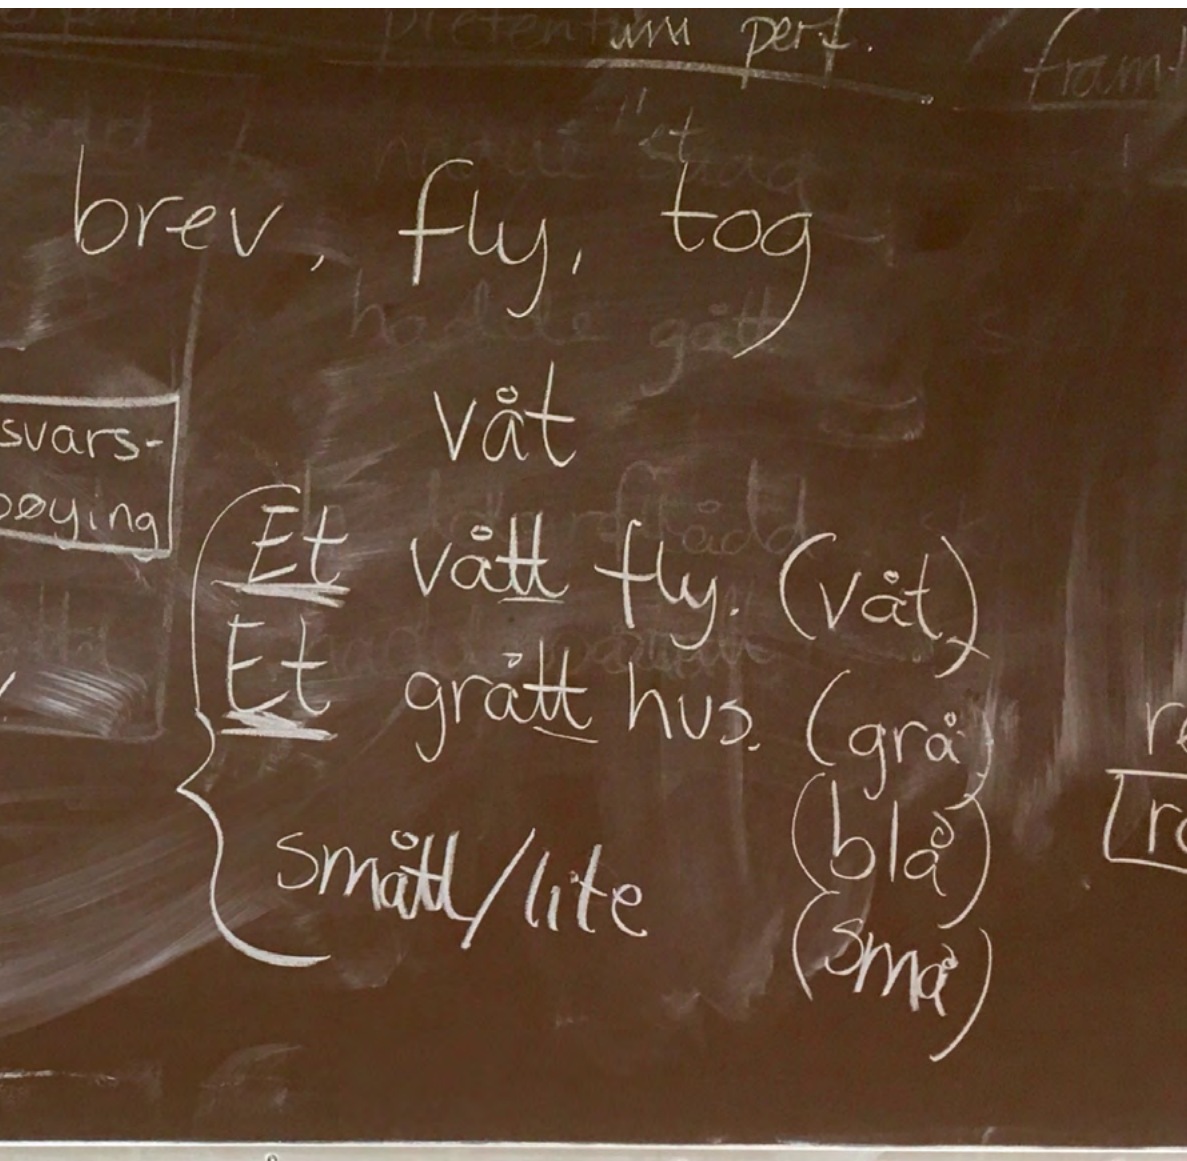 um perf.
framt
brev, fly, tog
hadde gått
våt
svars-
bøying
Et vått fly. (våt)
Et grått hus. (grå)
(blå)
smått/lite
(små)